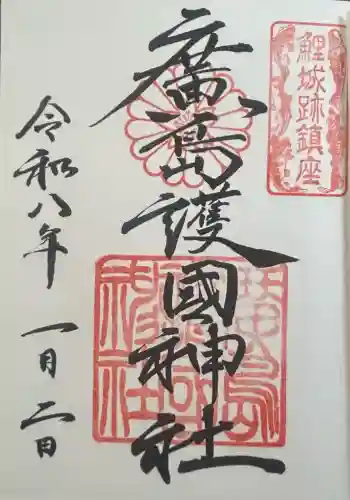 鯉城跡鎮座
廣島護國神社
廣島護國神社
令和八年 一月二日